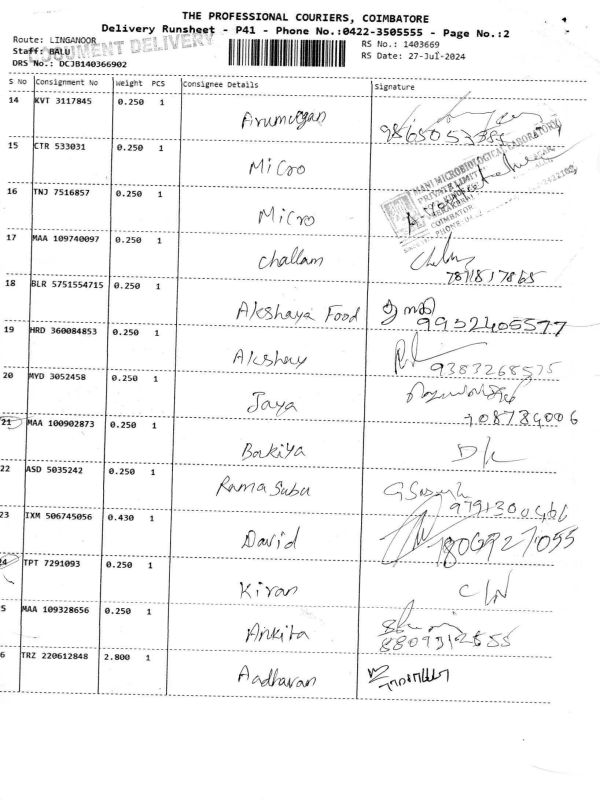 THE PROFESSIONAL COURIERS, COIMBATORE
Delivery Runsheet - P41 - Phone No.:0422-3505555 - Page No.:2
Route: LINGANOOR
RS No.: 1403669
Staff: BALU
DOCUMENT DELIVERY
RS Date: 27-Jul-2024
DRS No.: DCJB140366902
S No Consignment No Weight PCS Consignee Details Signature
14 KVT 3117845 0.250 1 Arumugan
9865053385
15 CTR 533031 0.250 1 Micro
MANI MICROBIOLOGICAL LABORATORY
PRIVATE LIMITED
COIMBATORE
16 TNJ 7516857 0.250 1 Micro
17 MAA 109740097 0.250 1 challam
7871817865
18 BLR 5751554715 0.250 1 Akshaya Food
9952405577
19 HRD 360084853 0.250 1 Akshay
9383268575
20 MYD 3052458 0.250 1 Jaya
21 MAA 100902873 0.250 1 Barkiya D/L
22 ASD 5035242 0.250 1 Rama Subu
9791300466
23 IXM 506745056 0.430 1 David
7806927055
24 TPT 7291093 0.250 1 Kiran
5 MAA 109328656 0.250 1 Ankita
8809312555
6 TRZ 220612848 2.800 1 Aadhavan